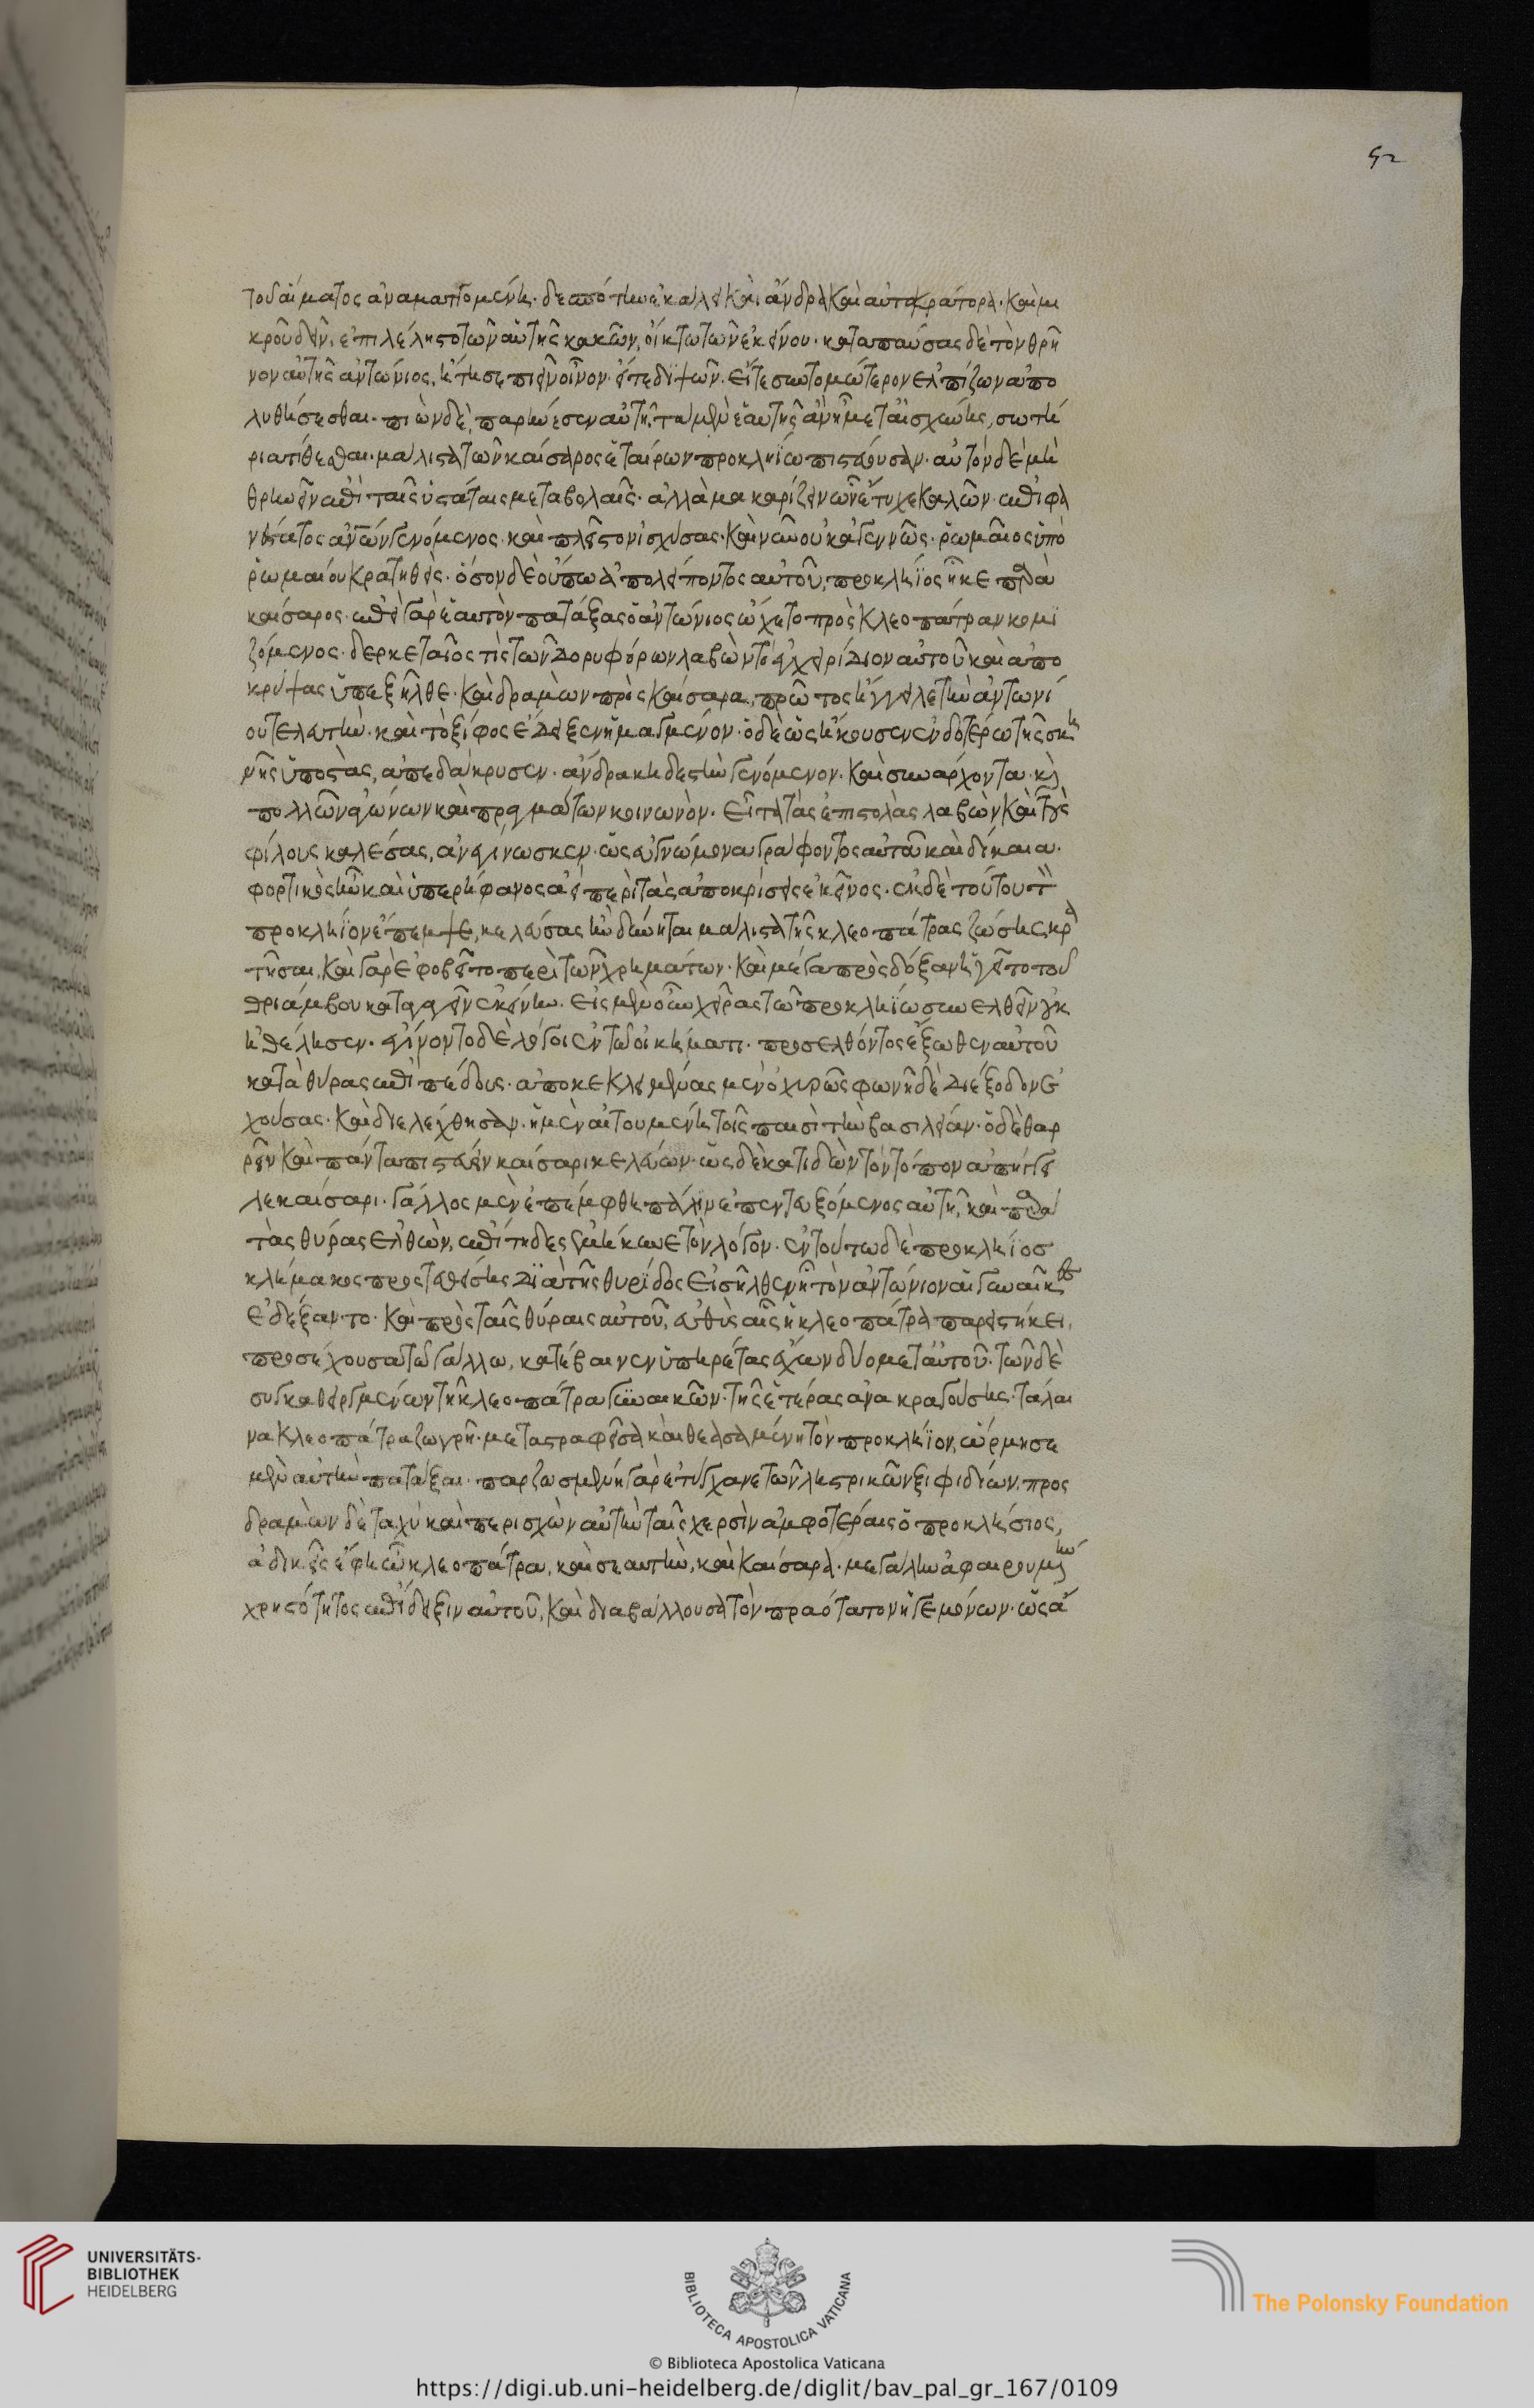 52
τοῦ αἵματος ἀναματτομένη. δεσπότην ἐκάλει καὶ ἄνδρα καὶ αὐτοκράτορα. καὶ μι
κροῦ δεῖν, ἐπιλέληστο τῶν αὑτῆς κακῶν, οἴκτω τῶν ἐκείνου. καταπαύσας δὲ τὸν θρῆ
νον αὐτῆς ἀντώνιος, ἤτησε πιεῖν οἶνον. εἴτε διψῶν. εἴτε συντομώτερον ἐλπίζων ἀπο
λυθήσεσθαι. πιὼν δὲ, παρήνεσεν αὐτῆ, τὰ μὲν ἑαυτῆς ἂν ἦ μετ' αἰσχύνης, σωτή
ρια τίθεσθαι. μάλιστα τῶν καίσαρος ἑταίρων προκληΐω πιστεύουσαν. αὐτὸν δὲ μὴ
θρηνεῖν ἐπὶ ταῖς ὑστάταις μεταβολαῖς. ἀλλὰ μακαρίζειν ὧν ἔτυχε καλῶν. ἐπιφα
νέστατος ἀνῶν γενόμενος. καὶ πλεῖστον ἰσχύσας. καὶ νῦν οὐκ ἀγεννῶς. ῥωμαῖος ὑπὸ
ῥωμαίου κρατηθείς. ὅσον δὲ οὔπω ἀπολείποντος αὐτοῦ, προκλήϊος ἧκε παρὰ
καίσαρος. ἐπεὶ γὰρ ἑαυτὸν πατάξας ὁ ἀντώνιος ὤχετο πρὸς κλεοπάτραν κομι
ζόμενος. δερκεταῖος τὶς τῶν δορυφόρων λαβὼν τὸ ἐγχειρίδιον αὐτοῦ καὶ ἀπο
κρύψας ὑπεξῆλθε. καὶ δραμὼν πρὸς καίσαρα, πρῶτος ἤγγειλε τὴν ἀντωνί
ου τελευτήν. καὶ τὸ ξίφος ἔδειξεν ἡμαγμένον. ὁ δὲ ὡς ἤκουσεν ἐνδοτέρω τῆς σκη
νῆς ὑποστὰς, ἀπεδάκρυσεν. ἄνδρα κηδεστὴν γενόμενον. καὶ συνάρχοντα. κὶ
πολλῶν ἀγώνων καὶ πραγμάτων κοινωνὸν. εἶτα τὰς ἐπιστολὰς λαβὼν καὶ τοὺς
φίλους καλέσας, ἀνεγίνωσκεν. ὡς εὐγνώμονα γράφοντος αὐτοῦ καὶ δίκαια.
φορτικὸς ἦν καὶ ὑπερήφανος ἀεὶ περὶ τὰς ἀποκρίσεις ἐκεῖνος. ἐκ δὲ τούτου τὸν
προκλήϊον ἔπεμψε, κελεύσας ἢν δύνηται μάλιστα τῆς κλεοπάτρας ζώσης κρα
τῆσαι. καὶ γὰρ ἐφοβεῖτο περὶ τῶν χρημάτων. καὶ μέγα πρὸς δόξαν ἡγεῖτο τοῦ
θριάμβου καταγαγεῖν ἐκείνην. εἰς μὲν οὖν χεῖρας τῶ προκληΐω συνελθεῖν οὐκ
ἠθέλησεν. ἐγίνοντο δὲ λόγοι ἐν τῶ οἰκήματι. προσελθόντος ἔξωθεν αὐτοῦ
κατὰ θύρας ἐπιπέδους. ἀποκεκλειμένας μὲν ὀχυρῶς φωνῆ δὲ διέξοδον ἐ
χούσας. καὶ διελέχθησαν. ἡ μὲν αἰτουμένη τοῖς παισὶ τὴν βασιλείαν. ὁ δὲ θαρ
ρεῖν καὶ πάντα πιστεύειν καίσαρι κελεύων. ὡς δὲ κατιδὼν τὸν τόπον ἀπήγγει
λε καίσαρι. γάλλος μὲν ἐπέμφθη πάλιν ἐπεντευξόμενος αὐτῆ, καὶ παρὰ
τὰς θύρας ἐλθὼν, ἐπίτηδες ἐμήκυνε τὸν λόγον. ἐν τούτω δὲ προκλήϊος
κλήμακος προστεθείσης διὰ τῆς θυρίδος εἰσῆλθεν ἧ τὸν ἀντώνιον αἱ γυναῖκες
ἐδέξαντο. καὶ πρὸς ταῖς θύραις αὐτοῦ, εὐθὺς αἷς ἡ κλεοπάτρα παρειστήκει,
προσέχουσα τῶ γάλλω, κατέβαινεν ὑπηρέτας ἔχων δύο μετ' αὐτοῦ. τῶν δὲ
συγκαθειργμένων τῆ κλεοπάτρα γυναικῶν. τῆς ἑτέρας ἀνακραγούσης. τάλαι
να κλεοπάτρα ζωγρῆ. μεταστραφεῖσα καὶ θεασαμένη τὸν προκλήϊον, ὥρμησε
μὲν αὑτὴν πατάξαι. παρεζωσμένη γὰρ ἐτύγχανε τῶν ληστρικῶν ξιφιδίων. προς
δραμὼν δὲ ταχὺ καὶ περισχὼν αὐτὴν ταῖς χερσὶν ἀμφοτέραις ὁ προκλήσιος,
ἀδικεῖς ἔφη ὦ κλεοπάτρα, καὶ σεαυτὴν, καὶ καίσαρα. μεγάλην ἀφαιρουμένη
χρηστότητος ἐπίδειξιν αὐτοῦ, καὶ διαβάλλουσα τὸν πραότατον ἡγεμόνων. ὡς ἄ
UNIVERSITÄTS-
BIBLIOTHEK
HEIDELBERG
BIBLIOTECA APOSTOLICA VATICANA
The Polonsky Foundation
© Biblioteca Apostolica Vaticana
https://digi.ub.uni-heidelberg.de/diglit/bav_pal_gr_167/0109